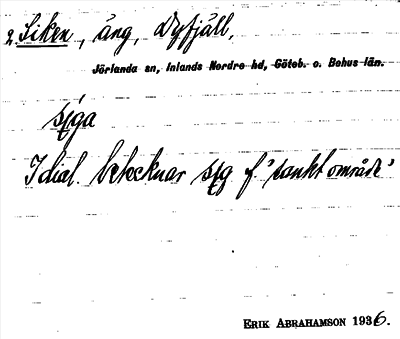 2. Siken, äng, Dyfjäll,
Jörlanda sn, Inlands Nordre hd, Göteb. o. Bohus län.
si̯ga
I dial. betecknar si̯g f. 'sankt område'
ERIK ABRAHAMSON 1936.